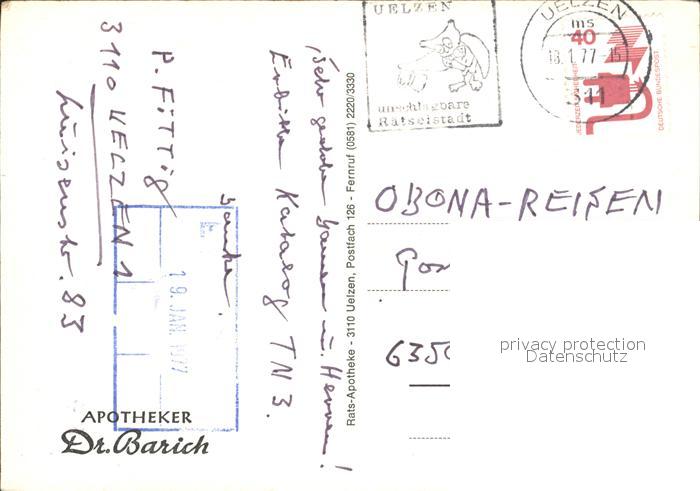 P. FITTIG
3110 UELZEN 1
Luisenstr. 83
Sehr geehrte Damen u. Herren!
Erbitte Katalog TN3.
Danke.
19. JAN. 1977
APOTHEKER
Dr. Barich
Rats-Apotheke - 3110 Uelzen, Postfach 126 - Fernruf (0581) 2220/3330
UELZEN
unschlagbare
Rätselstadt
UELZEN
ms
18.1.77-15
311
40
JEDERZEIT SICHERHEIT
DEUTSCHE BUNDESPOST
OBONA-REISEN
635
privacy protection
Datenschutz